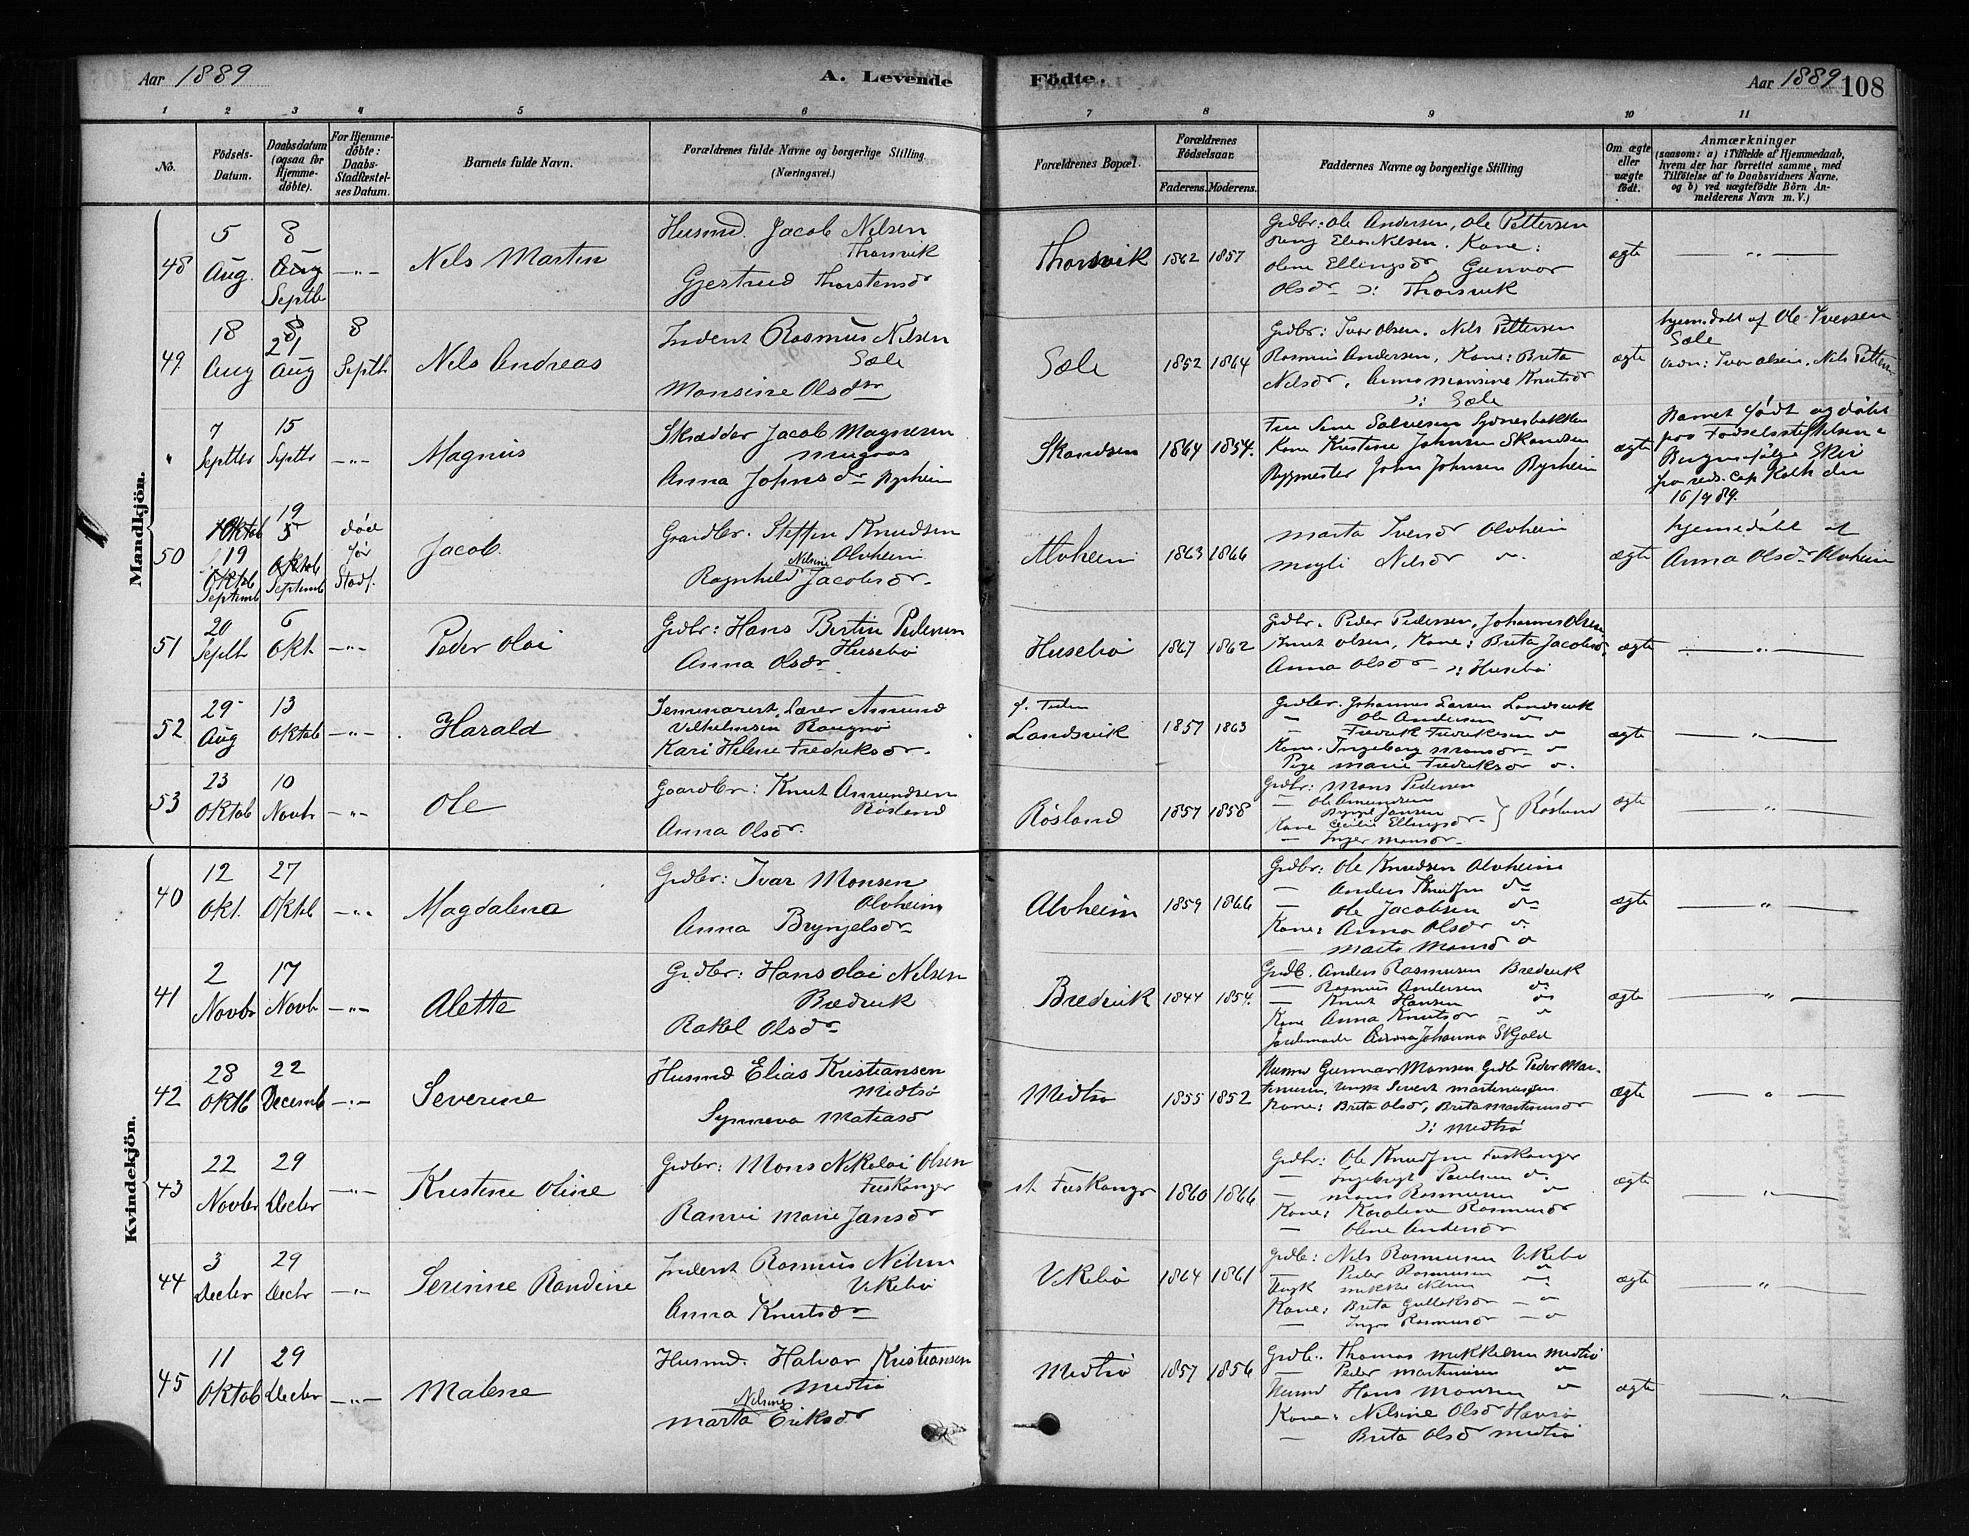 Aar 1889
A. Levende
Födte.
Aar 1889
108
1 2 3 4 5 6 7 8 9 10 11
No.
Födsels-
Datum.
Daabsdatum
(ogsaa før
Hjemme-
döbte).
For Hjemme-
döbte:
Daabs-
Stadfæstel-
ses Datum.
Barnets fulde Navn.
Forældrenes fulde Navne og borgerlige Stilling
(Næringsvei.)
Forældrenes Bopæl.
Forældrenes
Födselsaar.
Faderens. Moderens.
Faddernes Navne og borgerlige Stilling
Om ægte
eller
uægte
födt.
Anmærkninger
(saasom: a) i Tilfælde af Hjemmedaab,
hvem der har forrettet samme, med
Tilföielse af to Daabsvidners Navne,
og b) ved uægtefödte Börn An-
melderens Navn m. V.)
Mandkjön.
48
5
Aug.
8
Aug
Septb
—"—
Nels Martin
Husmd. Jacob Nilsen
Thorsvik
Gjertrud Thorstensdr
Thorsvik
1862 1857
Grdbr: Ole Andersen, Ole Pettersen
Ung Elias Nilsen. Kone:
Olene Ellingsdr, Gunvor
Olsdr ɔ: Thorsvik
ægte
— " —
49.
18
Aug
8
21
Aug
8
Septb
Nels Andreas
Inderst Rasmus Nilsen
Sæle
Monsine Olsdtr
Sæle
1852 1864
Grdbr: Ivar Olsen. Nels Pettersen
Rasmus Andersen, Kone: Brita
Nelsdr, Anna Monsine Knutsdr
ɔ: Sæle
ægte
hjemdøbt af Ole Iversen
Sæle
vidn: Ivar Olsen, Nils Petters
"
7
Septbr
15
Septbr
—"—
Magnus
Skrædder Jacob Magnesen
Anna Johnsdr Byrheim
Skandsen
1864 1854.
Kone Kristine Johnsen Skandsen
Bygmester John Johnsen Byrheim
ægte
Barnet født og døbt
paa Fødselsstiftelsen i
Bergen ifølge Skriv
fra res. Cap Kolth den
16/9 89.
50
Oktob
19
Oktob
Septemb
19
5
Oktob
Septemb
død
før
Stadf.
Jacob
Gaardbr. Steffen Knudsen
Nilsine Alvheim
Ragnhild Jacobsdr.
Alvheim
1863 1866
Marta Iversdr Alvheim
Magli Nilsdr "
ægte
hjemedøbt af
Anna Olsdr Alvheim
51
20
Septb
6
Okt.
—"—
Peder Olai
Grdbr: Hans Bertin Pedersen
Husebø
Anna Olsdr
Husebø
1867 1862
Grdbr. Peder Pedersen, Johannes Olsen
Knut Olsen, Kone: Brita Jacobsd.
Anna Olsdr ɔ: Husebø
ægte
— " —
52
29
Aug
13
Oktob
—"—
Harald
Seminarist Lærer Amund
Vilhelmsen Rangnø
Kari Helene Fredriksdr.
Landsvik
1857 1863
Grdbr. Johannes Larsen Landsvik
— Ole Andersen "
— Fredrik Fredriksen "
Kone. Ingeborg Monsdr "
Pige Marie Fredriksdr "
ægte
— " —
53
23
Oktob
10
Novbr
—"—
Ole
Gaardbr: Knut Amundsen
Røsland
Anna Olsdr.
Røsland
1857 1858
Grdbr: Mons Pedersen
— Ole Amundsen
Kone Cecilie Ellingsdr } Røsland
— Inger Monsdr
ægte
— " —
Kvindekjön.
40
12
Okt.
27
Oktb
—"—
Magdalena
Grdbr: Ivar Monsen
Alvheim
Anna Brynjelsdr
Alvheim
1859 1866
Grdbr: Ole Knudsen Alvheim
— Anders Knudsen do
— Ole Jacobsen do
Kone: Anna Olsdr do
— Marta Monsd do
ægte
— " —
41
2
Novbr
17
Novb
—"—
Alette
Grdbr: Hans Olai Nilsen
Bredvik
Rakel Olsdr
Bredvik
1844 1854.
Grdb. Anders Rasmusen Bredvik
— Rasmus Andersen do
— Knut Hansen do
Kone Anna Knutsdr — do
Jordemoder Johanna Skjold
ægte
— " —
42
28
Oktb
22
Decemb
—"—
Severine
Husmd Elias Kristiansen
Midtø
Synneva Matiasd
Midtø
1855 1852
Husmd Gunnar Monsen Grdb Peder Mar-
tinusen, Ungk Sivert Martinussen
Kone: Brita Olsdr, Brita Martinusdr
ɔ: Midtø
ægte
— " —
43
22
Novbr
29
Decbr
—"—
Kristine Oline
Grdbr: Mons Nikolai Olsen
Fuskanger
Ranvi Marie Jansdr
st. Fuskangr
1860 1866
Grdbr: Ole Knudsen Fuskanger
— Ingebrigt Paulsen do.
— Mons Rasmusen do
Kone: Karoline Rasmusdr
— Olene Andersdr
ægte
— " —
44
3
Decbr
29
Decbr
—"—
Serinne Randine
Inderst Rasmus Nilsen
Vikebø
Anna Knutsdr
Vikebø
1864 1861
Grdb: Nils Rasmusen Vikebø
— Peder Rasmusen do
Ungk Mikkel Nilsen do
Kone: Brita Gulleksdr — do
— Inger Rasmusdr — do
ægte
— " —
45
11
Oktob
29
Decbr
—"—
Malene
Husmd. Halvar Kristiansen
Midtø
Nilsine
Marta Eriksdr
Midtø
1857 1856
Grdb. Thomas Mikkelsen Midtø
— Peder Martinusen do
Husmd Hans Monsen do
Kone: Nilsine Olsd Hævrø
— Brita Olsd Midtø
ægte
— " —